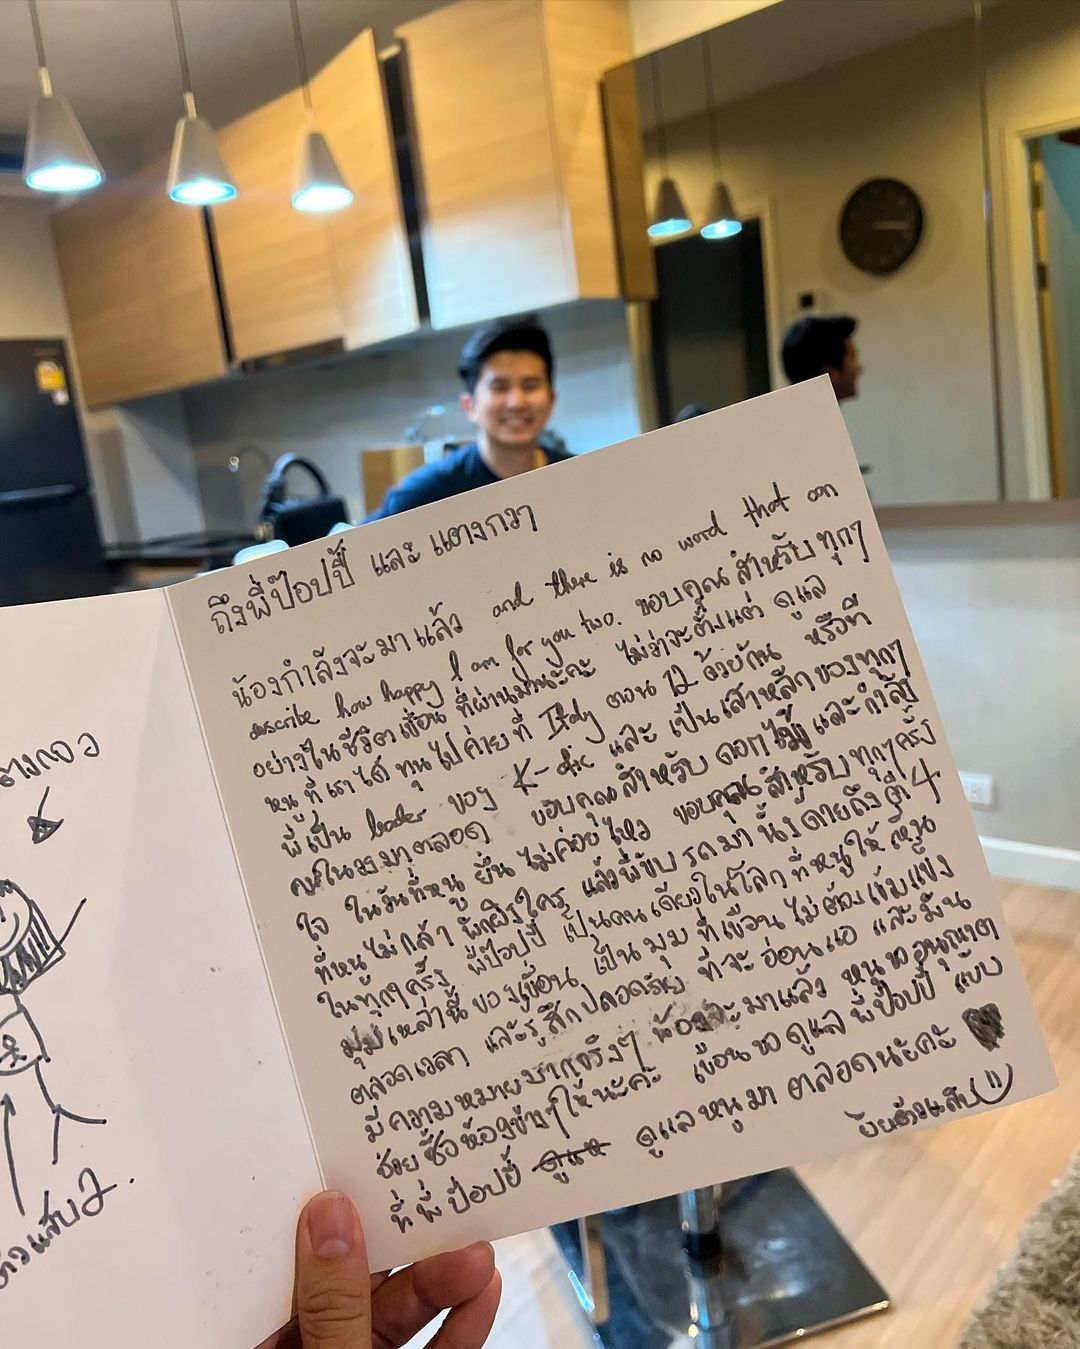 ถึงพี่ป๊อปปี้ และ แตงกวา
น้องกำลังจะมาแล้ว and there is no word that can
describe how happy I am for you two. ขอบคุณสำหรับทุกๆ
อย่างในชีวิตเขื่อน ที่ผ่านมานะคะ ไม่ว่าจะตั้งแต่ ดูแล
หนู ที่เราได้ทุนไปค่ายที่ ตอน 12 ด้วยกัน หรือที่
พี่เป็น leader ของ K-OTIC และ เป็นเสาหลักของทุกๆ
คนในวงมาตลอด ขอบคุณสำหรับ ดอกไม้ และกำลัง
ใจ ในวันที่หนู ยืนไม่ค่อยไหว ขอบคุณสำหรับทุกๆครั้ง
ที่หนูไม่กล้า พึ่งพิงใคร แล้วพี่ขับรถมา ถึงตี 4
ในทุกๆครั้ง พี่ป๊อปปี้ เป็นคนเดียวในโลก ที่หนูให้เห็น
มุมเหล่านี้ของเขื่อน เป็นมุม ที่เขื่อนไม่ต้องเข้มแข็ง
ตลอดเวลา และรู้สึกปลอดภัย ที่จะอ่อนแอ และมัน
มีความหมายมากจริงๆ น้องจะมาแล้ว หนูขออนุญาต
ช่วยซื้อห้องข้างๆให้นะคะ เขื่อนขอดูแล พี่ป๊อปปี้ แบบ
ที่พี่ป๊อปปี้ ดูแลหนูมา ตลอดนะคะ
ยัยตัวแสบ
แตงกวา
ตัวแสบ2.